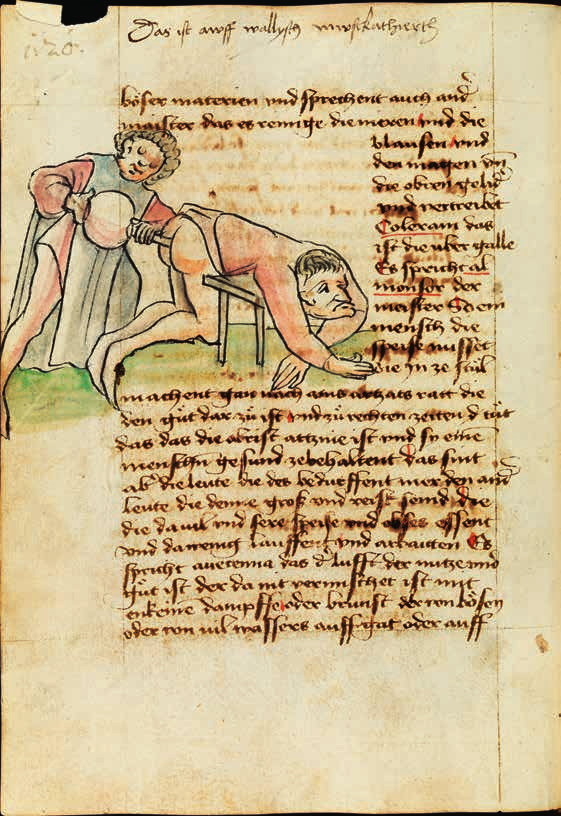 1126.
Das ist awff wallisch
böser materien vnd sprechent auch and̄
maister das es reinige die nieren vnd die
blausen vnd
den magen vn̄
die obren gelid
vnd vertreibet
Coleram das
ist die über galle
Es spricht al
mansor der
meister So ein
mensch die
speise nusset
die in ze stůl
machent gan nach ains artzats ratt die
den gůt dar zů ist vnd zů rechten zeitten d tůt
das das die obrist artznie ist vnd sy eine
menschn̄ gesund ze behaltent das sint
alt die leute die des bedurffent mer den and
leute die denne groß vnd reisk seind die
die da vil vnd sere speise vnd obses essent
vnd da wenig lauffent vnd arbaitten Es
spricht auicenna das d̄ lufft der nutze vnd
gůt ist der da nit vermischet ist mit
enkeine dampffe oder brunst der von bösen
oder von vil wassers auff gat oder auff